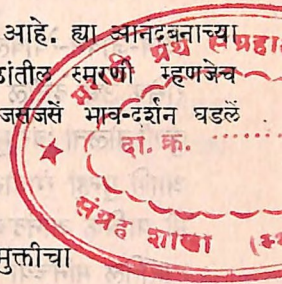 आहे. ह्या आनंदवनाच्या
ांतील स्मरणी म्हणजेच
जसजसें भाव-दर्शन घडलें
मुक्तीचा
ग्रंथ संग्रहा
दा. क्र.
संग्रह शाखा